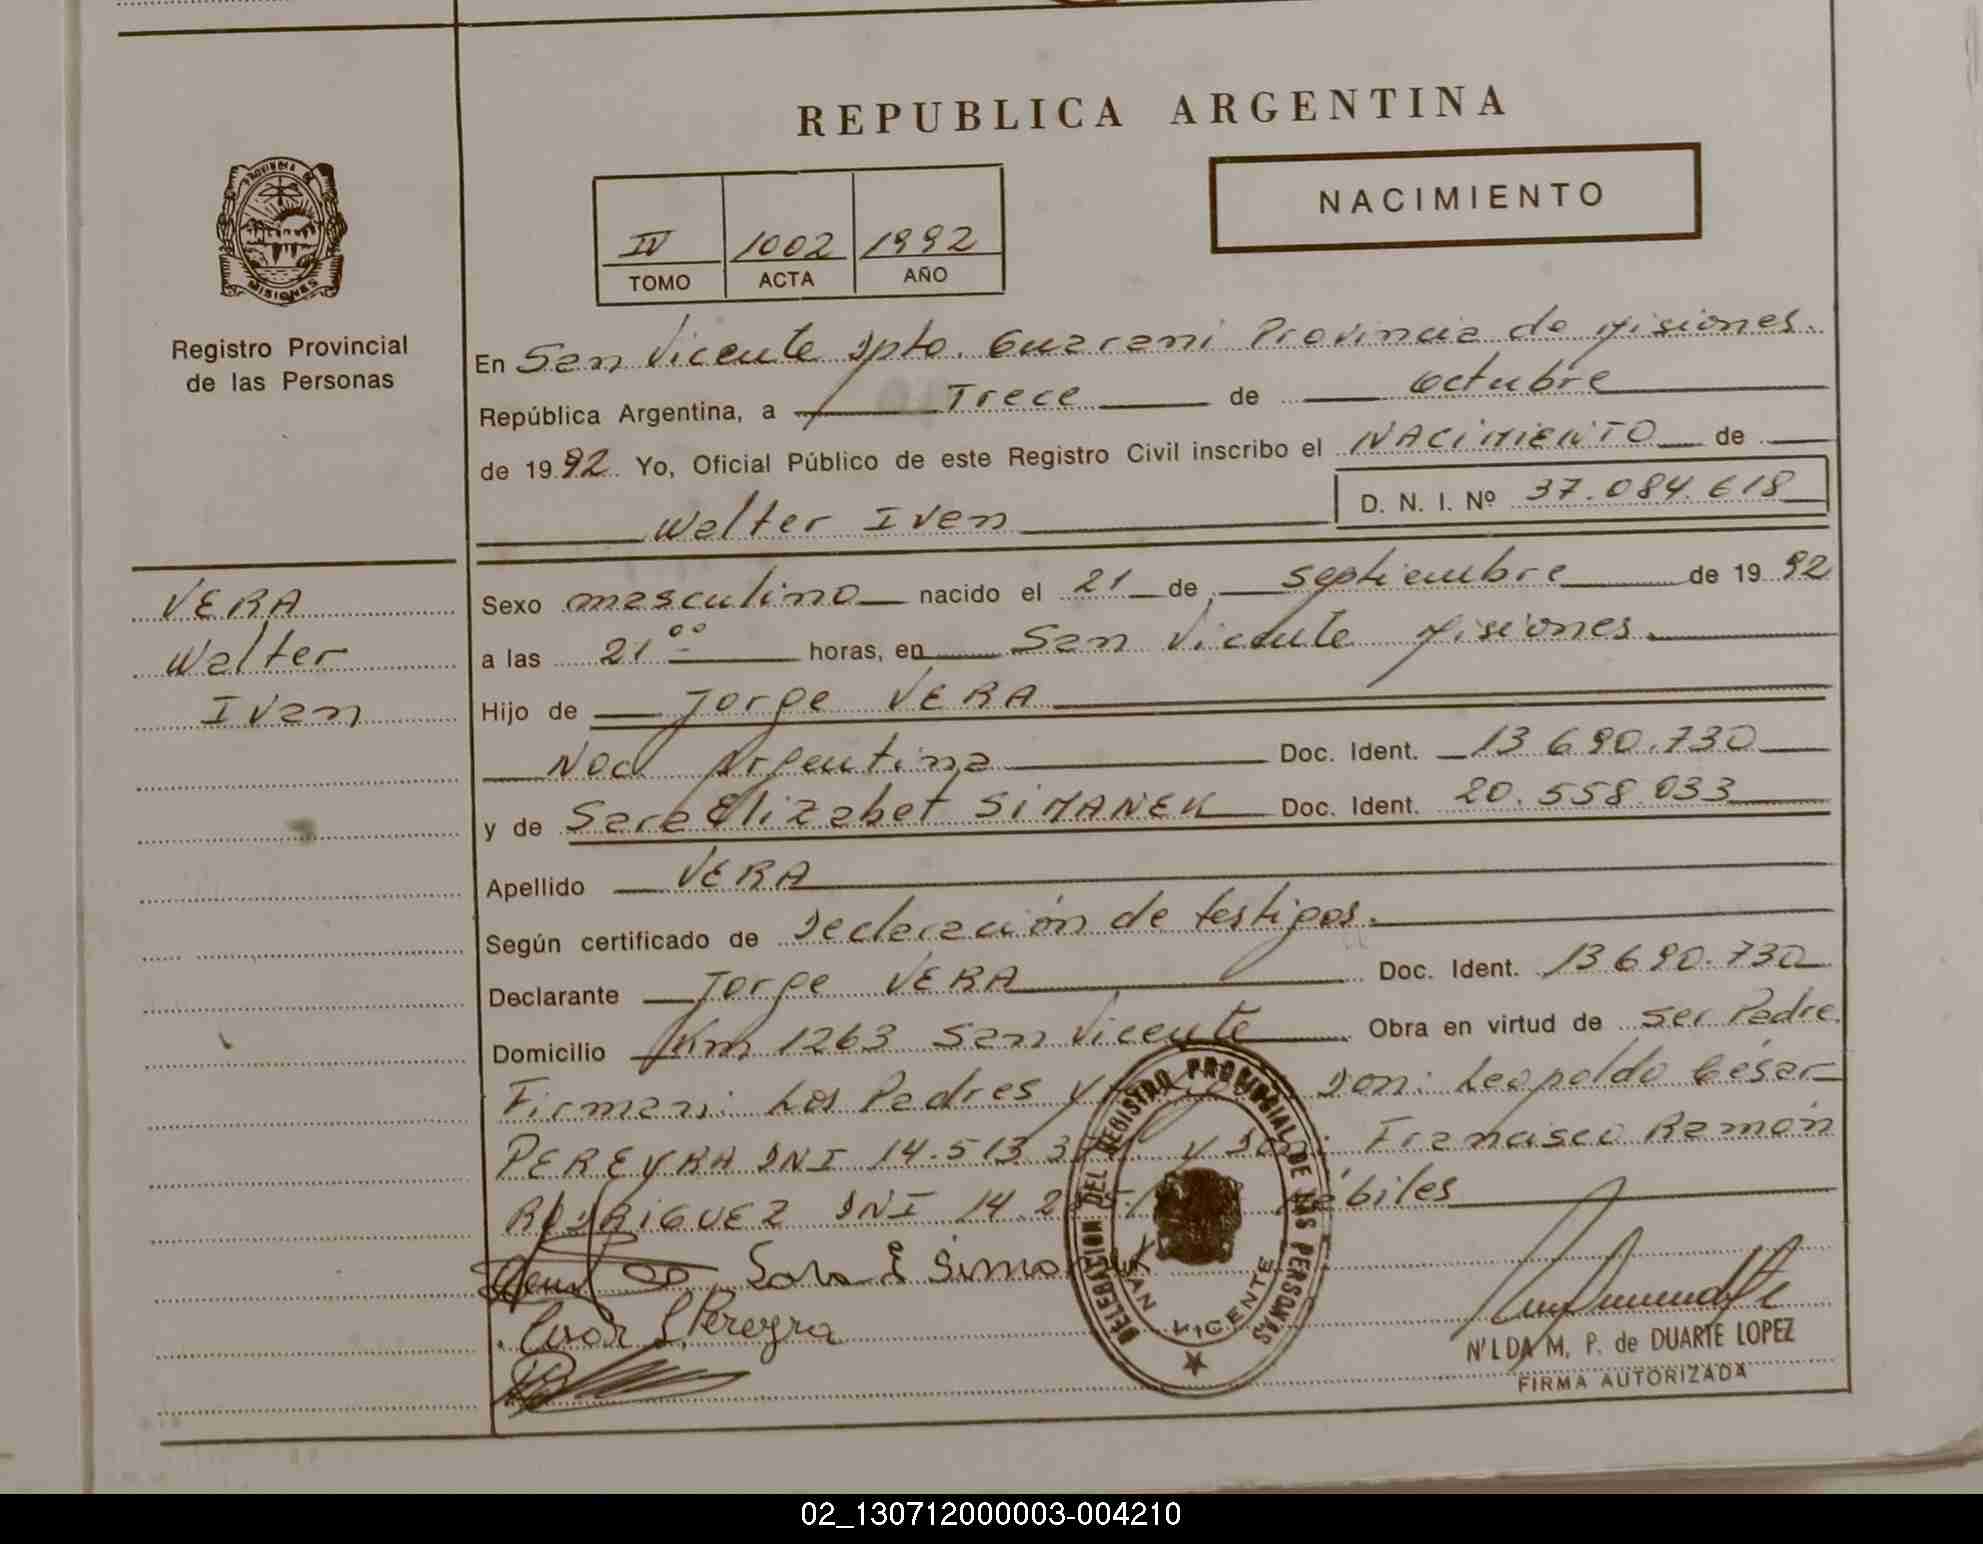 REPUBLICA ARGENTINA
NACIMIENTO
IV 1002 1992
TOMO ACTA AÑO
PROVINCIA DE
MISIONES
Registro Provincial
de las Personas
En San Vicente Dpto. Guarani Provincia de Misiones.
República Argentina, a Trece de octubre
de 1992 Yo, Oficial Público de este Registro Civil inscribo el NACIMIENTO de
Walter Ivan D. N. I. Nº 37.084.618
VERA
Walter
Ivan
Sexo masculino nacido el 21 de septiembre de 1992
a las 21 ºº horas, en San Vicente Misiones.
Hijo de Jorge VERA
Nac. Argentina Doc. Ident. 13.690.730
y de Sara Elizabet SIMANEK Doc. Ident. 20.558.033
Apellido VERA
Según certificado de Declaración de testigos.
Declarante Jorge VERA Doc. Ident. 13.690.730
Domicilio Km 1263 San Vicente Obra en virtud de ser Padre.
Firman: Los Padres y Don: Leopoldo César
PEREYRA DNI 14.513.3 y Don: Francisco Ramón
RODRIGUEZ DNI 14.2 Hábiles
Sara E Simanek
L Pereyra
DELEGACION DEL REGISTRO PROVINCIAL DE LAS PERSONAS
SAN VICENTE
NILDA M. P. de DUARTE LOPEZ
FIRMA AUTORIZADA
02_130712000003-004210